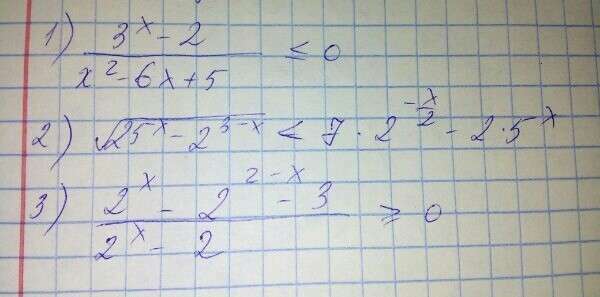 1) (3^x - 2)/(x² - 6x + 5) ≤ 0
2) √(25^x - 2^(3-x)) < 7 · 2^(-x/2) - 2 · 5^x
3) (2^x - 2^(2-x) - 3)/(2^x - 2) ≥ 0